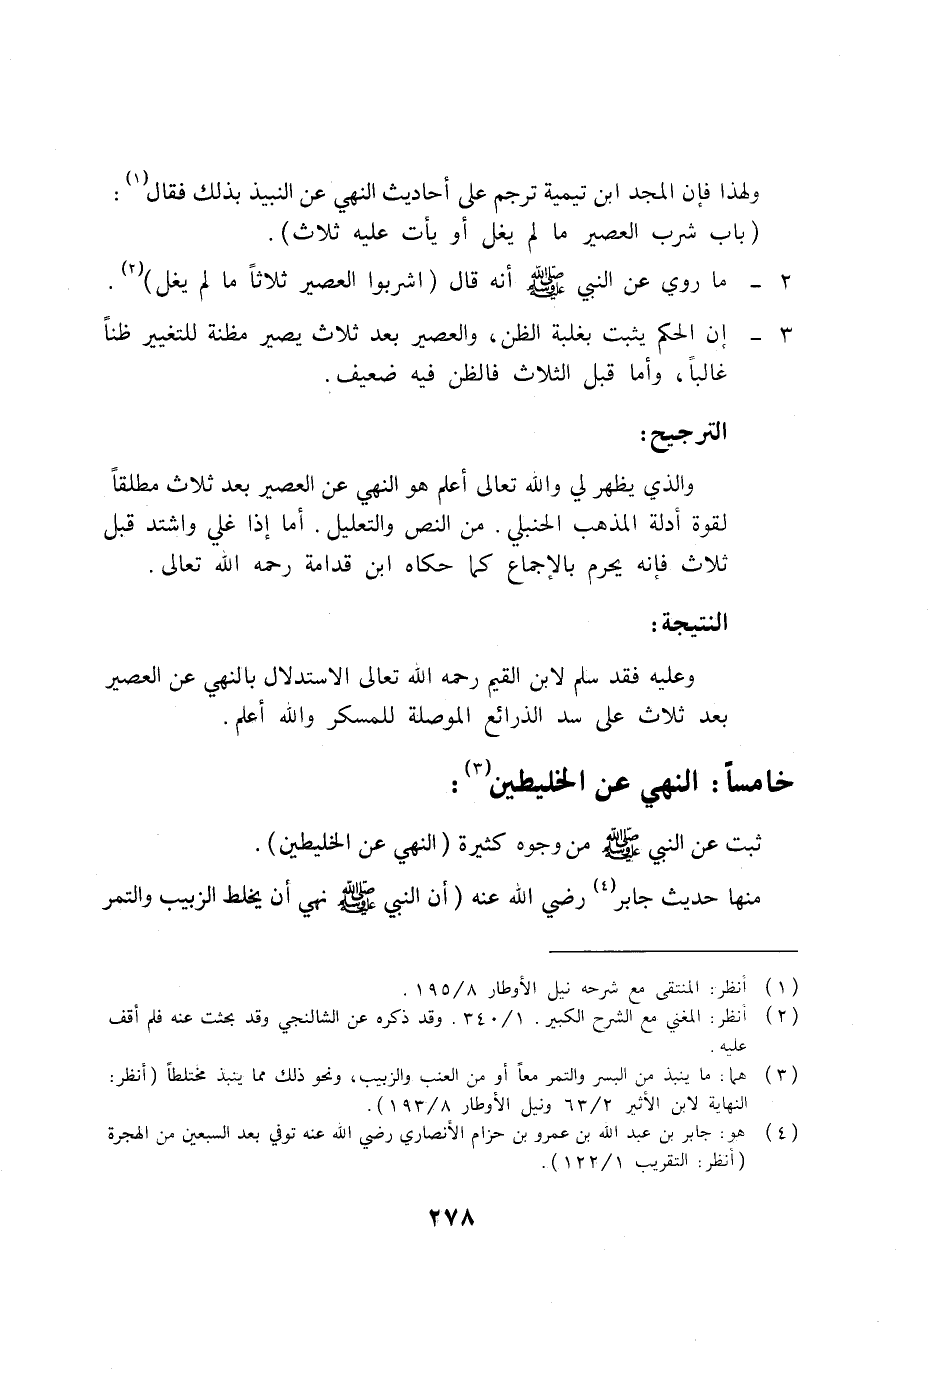 ولهذا فإن المجد ابن تيمية ترجم على أحاديث النهي عن النبيذ بذلك فقال(١) :
( باب شرب العصير ما لم يغل أو يأت عليه ثلاث ) .
٢ - ما روي عن النبي ﷺ أنه قال ( اشربوا العصير ثلاثاً ما لم يغل )(٢) .
٣ - إن الحكم يثبت بغلبة الظن ، والعصير بعد ثلاث يصير مظنة للتغيير ظناً
غالباً ، وأما قبل الثلاث فالظن فيه ضعيف .
الترجيح :
والذي يظهر لي والله تعالى أعلم هو النهي عن العصير بعد ثلاث مطلقاً
لقوة أدلة المذهب الحنبلي . من النص والتعليل . أما إذا غلي واشتد قبل
ثلاث فإنه يحرم بالإجماع كما حكاه ابن قدامة رحمه الله تعالى .
النتيجة :
وعليه فقد سلم لابن القيم رحمه الله تعالى الاستدلال بالنهي عن العصير
بعد ثلاث على سد الذرائع الموصلة للمسكر والله أعلم .
خامساً : النهي عن الخليطين(٣) :
ثبت عن النبي ﷺ من وجوه كثيرة ( النهي عن الخليطين ) .
منها حديث جابر(٤) رضي الله عنه ( أن النبي ﷺ نهي أن يخلط الزبيب والتمر
( ١ ) أنظر : المنتقى مع شرحه نيل الأوطار ١٩٥/٨ .
( ٢ ) أنظر : المغني مع الشرح الكبير . ٣٤٠/١ . وقد ذكره عن الشالنجي وقد بحثت عنه فلم أقف
عليه .
( ٣ ) هما : ما ينبذ من البسر والتمر معاً أو من العنب والزبيب ، ونحو ذلك مما ينبذ مختلطاً ( أنظر :
النهاية لابن الأثير ٦٣/٢ ونيل الأوطار ١٩٣/٨ ) .
( ٤ ) هو : جابر بن عبد الله بن عمرو بن حزام الأنصاري رضي الله عنه توفي بعد السبعين من الهجرة
( أنظر : التقريب ١٢٢/١ ) .
٢٧٨